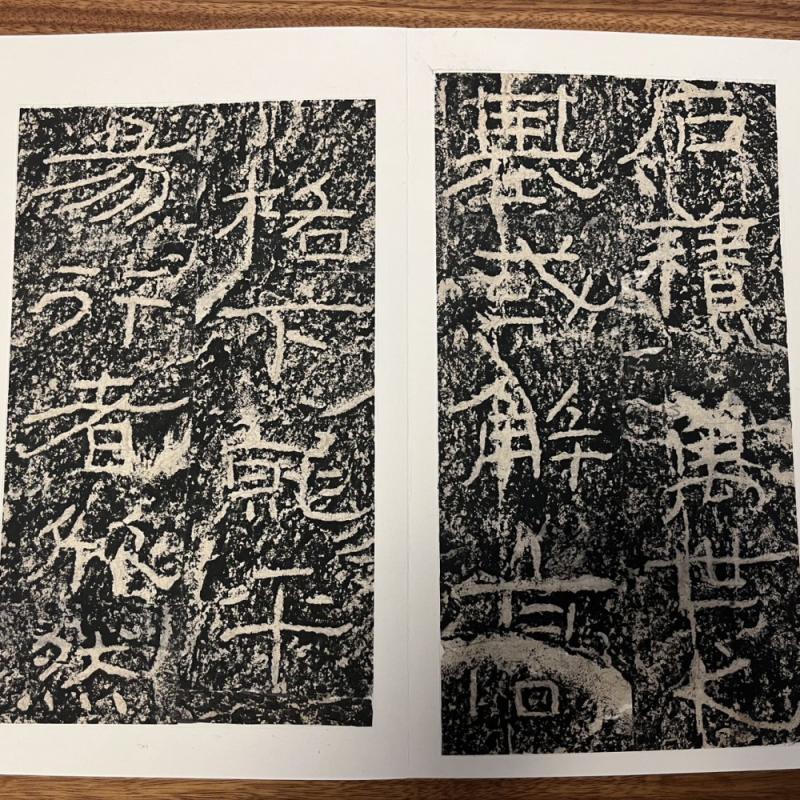 石積萬世之
基或解高
格下就平
易行者欣然